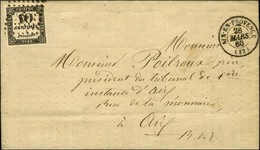 AIX-EN-PROVENCE
28
MARS
60
(12)
10
Monsieur
Monsieur Poilroux
président du tribunal de 1ère
instance d'Aix
Rue de la monnaie
à Aix
B.d.R